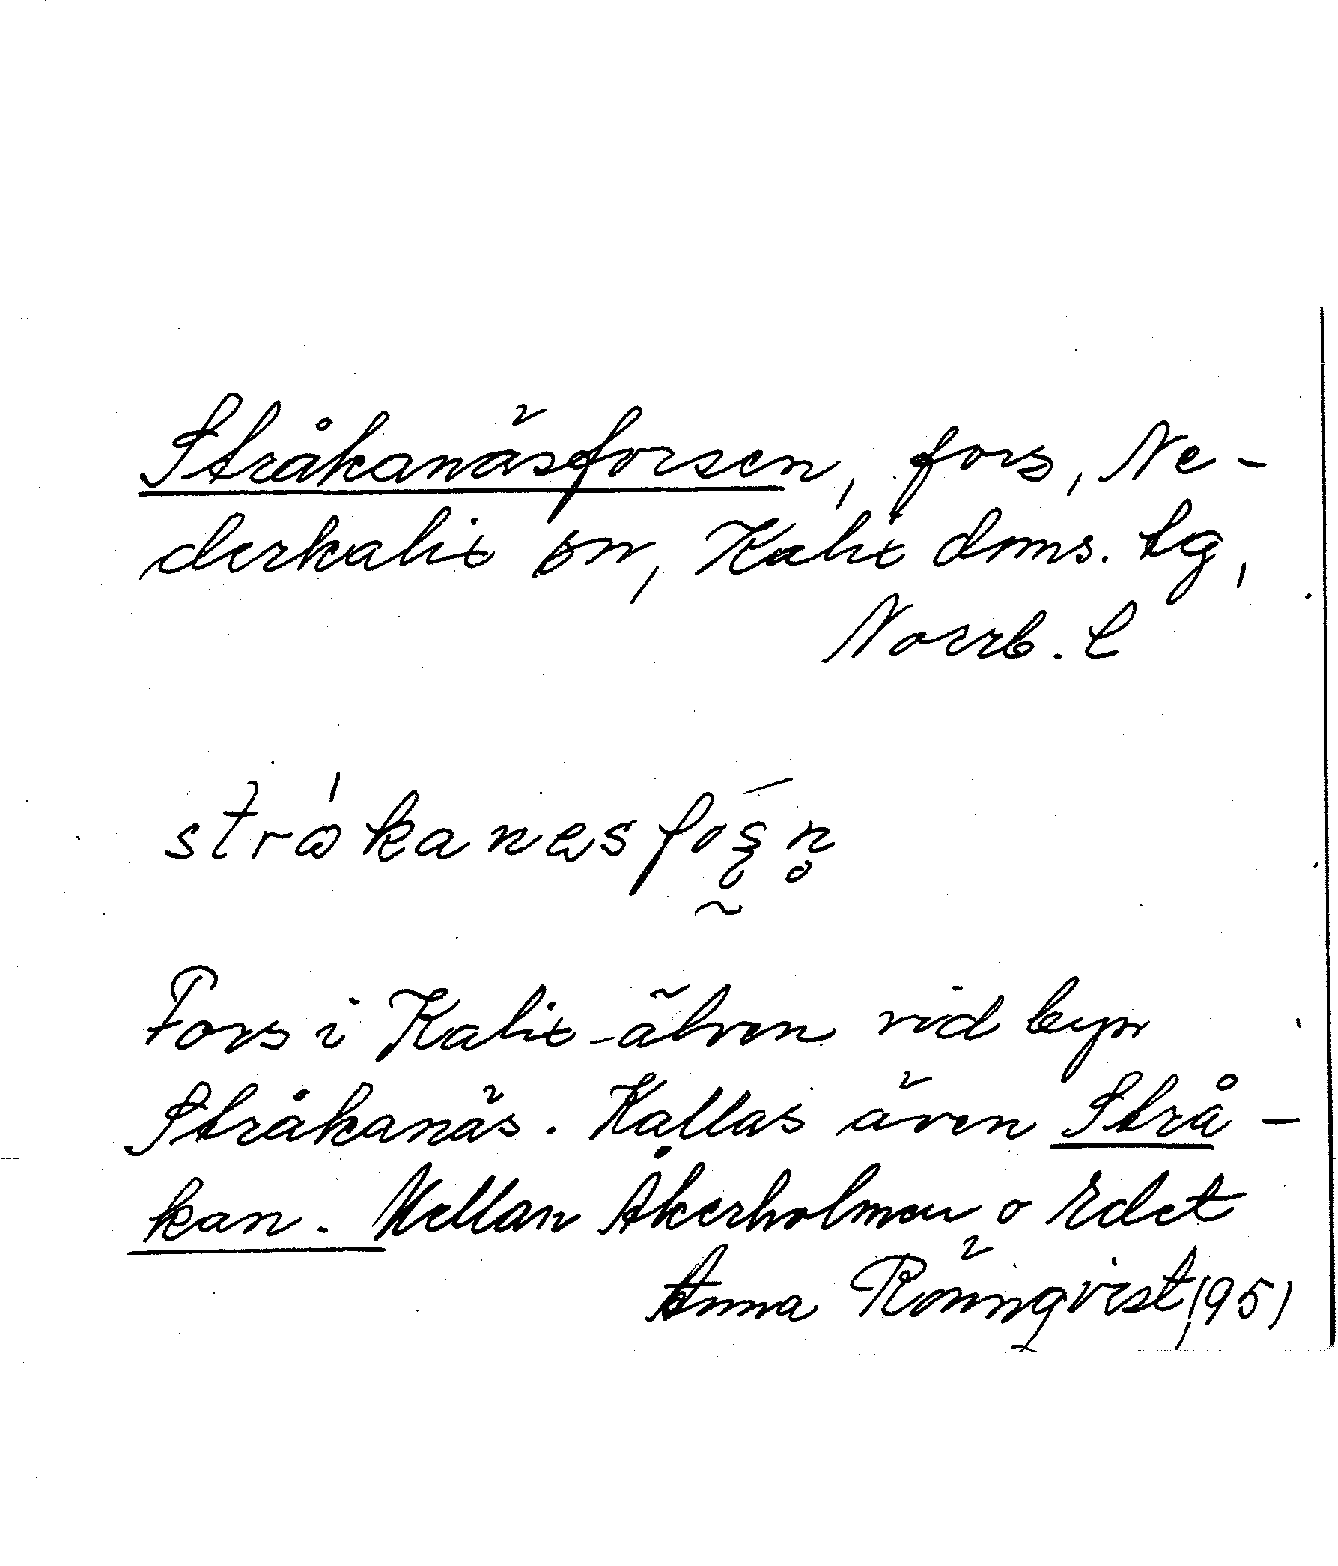 Stråkanäsforsen, fors, Ne-
derkalix sn, Kalix doms. lg,
Norrb. l
stråkanæsfóṣn̥
Fors i Kalix-älven vid byn
Stråkanäs. Kallas även Strå-
kan. Mellan Åkerholmen o Edet
Anna Rönnqvist, 1951